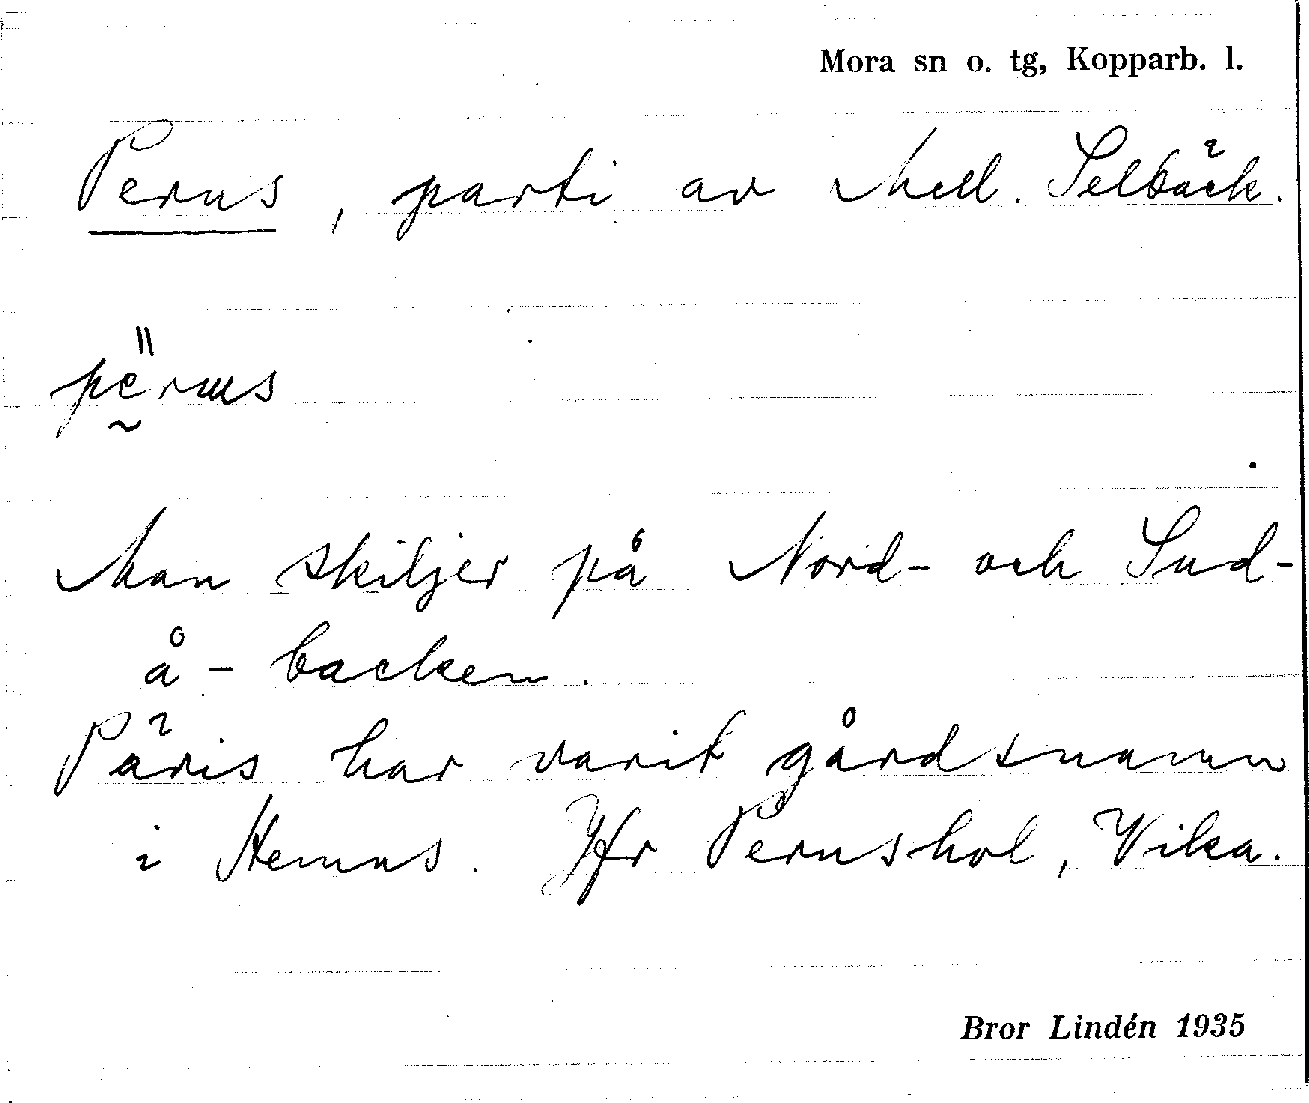 Mora sn o. tg, Kopparb. l.
Perus, parti av Mell. Selbäck.
pḛ̈rus
Man skiljer på Nord- och Sud-
å-backen.
Päris har varit gårdsnamn
i Hemus. Jfr Perushol, Vika.
Bror Lindén 1935